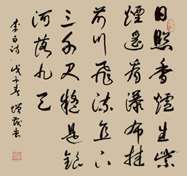 日照香爐生紫
煙遥看瀑布挂
前川飛流直下
三千尺疑是銀
河落九天
李白诗 戊子春